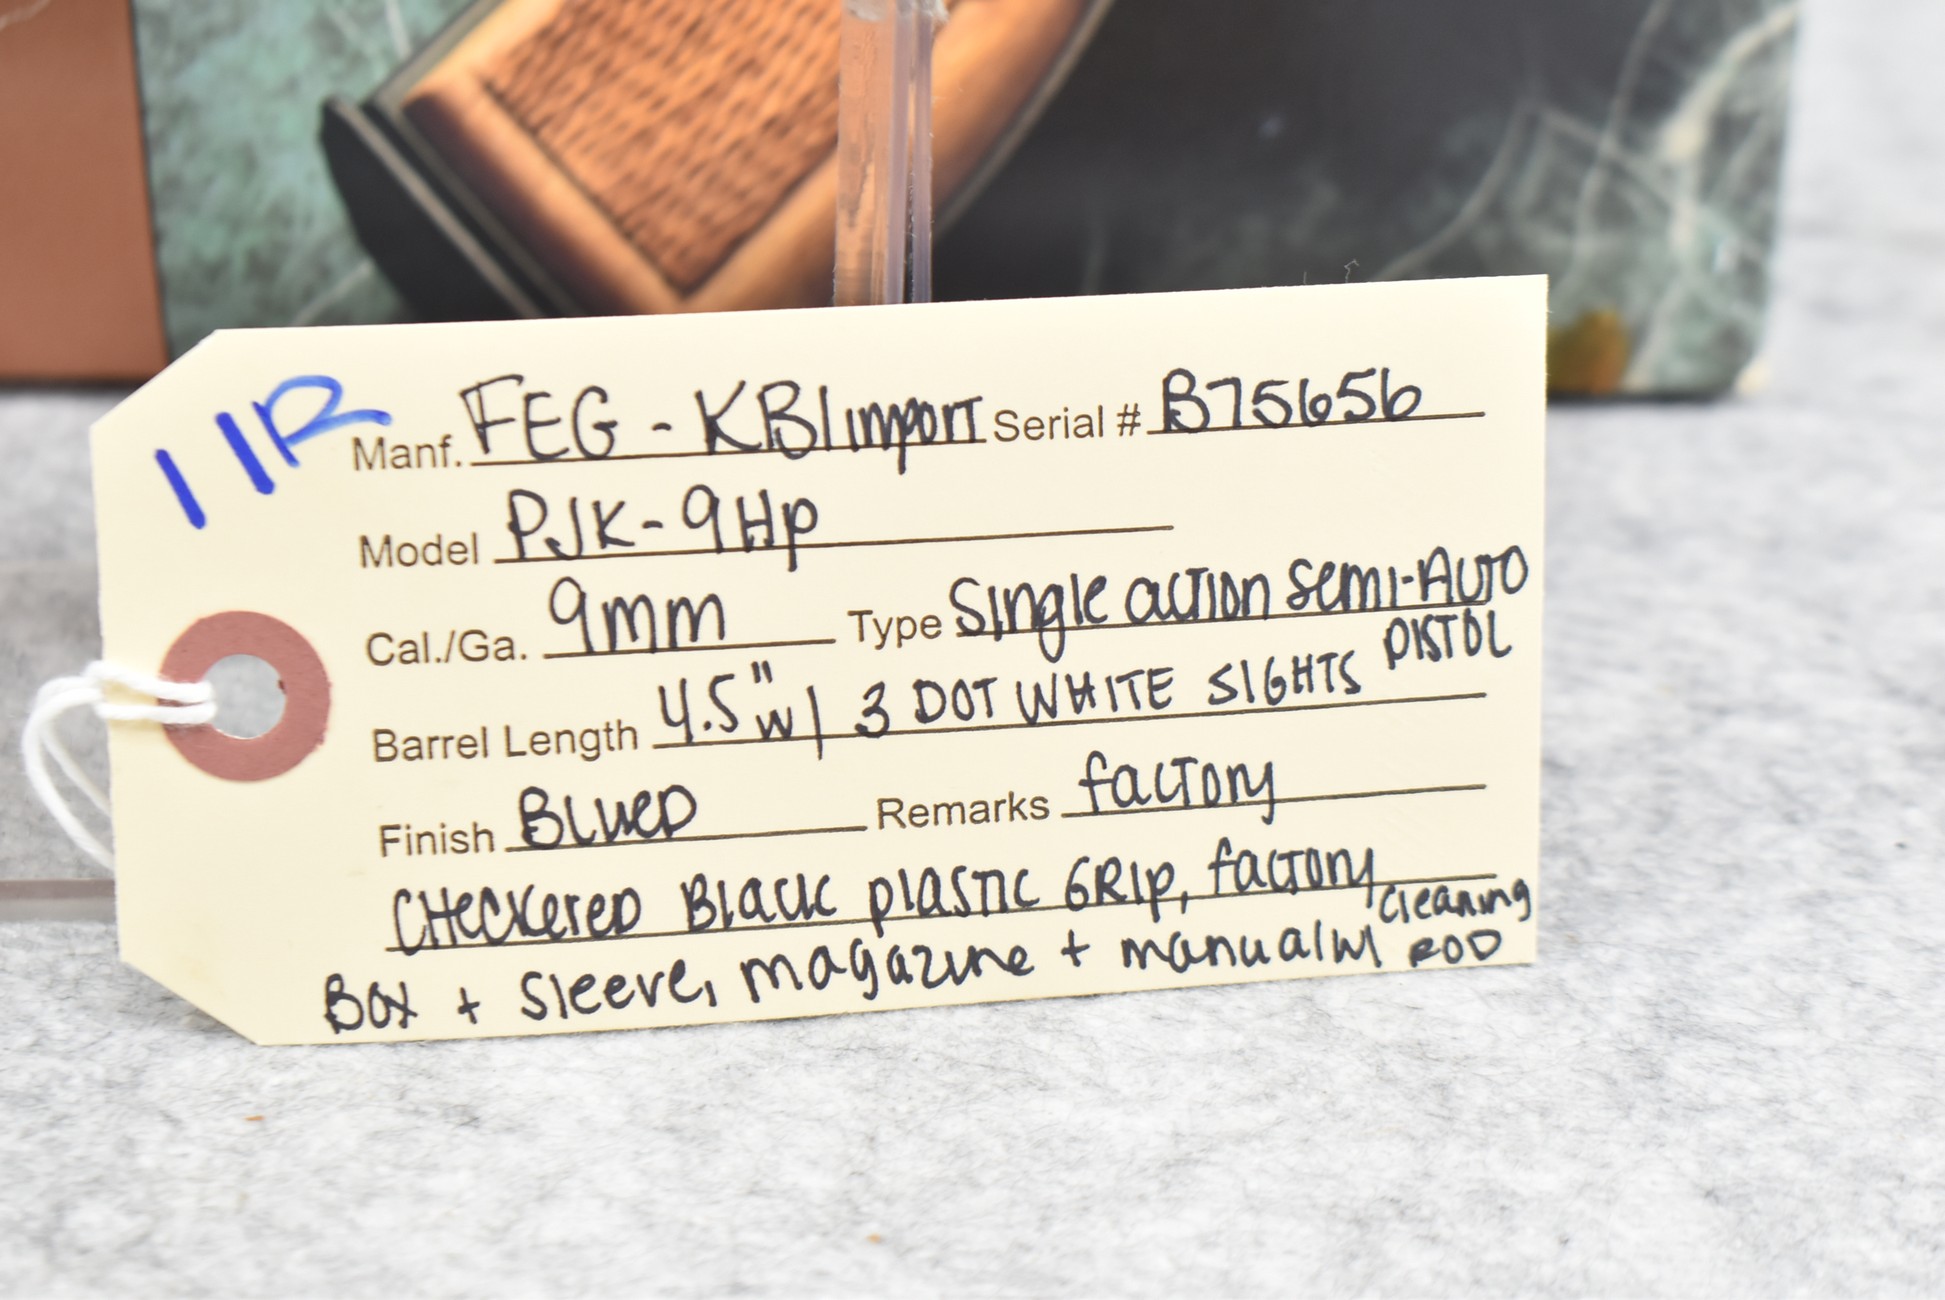 11R
Manf. FEG - KBI import Serial # B75656
Model PJK-9HP
Cal./Ga. 9mm Type Single action semi-AUTO
PISTOL
Barrel Length 4.5" w/ 3 DOT WHITE SIGHTS
Finish BLUED Remarks factory
CHECKERED BLACK plastic GRIP, factory
Box + sleeve, magazine + manual w/ cleaning ROD